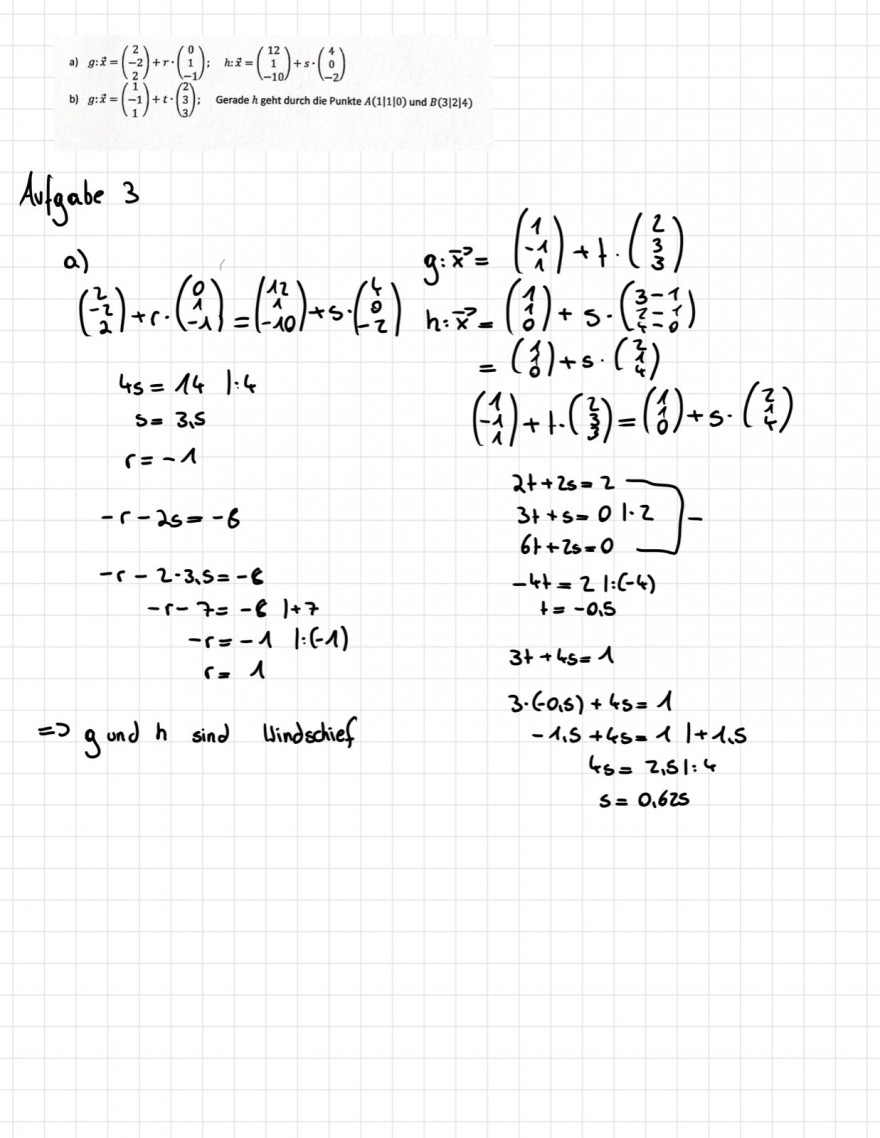 a) g:x⃗ = (2 -2 2) + r· (0 1 -1); h:x⃗ = (12 1 -10) + s· (4 0 -2)
b) g:x⃗ = (1 -1 1) + t· (2 3 3); Gerade h geht durch die Punkte A(1|1|0) und B(3|2|4)
Aufgabe 3
a)
(2 -2 2) + r· (0 1 -1) = (12 1 -10) + s· (4 0 -2)
4s = 14 |:4
s = 3,5
r = -1
-r - 2s = -8
-r - 2·3,5 = -8
-r - 7 = -8 |+7
-r = -1 |:(-1)
r = 1
=> g und h sind Windschief
g:x⃗ = (1 -1 1) + t· (2 3 3)
h:x⃗ = (1 1 0) + s· (3-1 2-1 4-0)
= (1 1 0) + s· (2 1 4)
(1 -1 1) + t· (2 3 3) = (1 1 0) + s· (2 1 4)
2t + 2s = 2
3t + s = 0 |·2 -
6t + 2s = 0
-4t = 2 |:(-4)
t = -0,5
3t + 4s = 1
3·(-0,5) + 4s = 1
-1,5 + 4s = 1 |+1,5
4s = 2,5 |:4
s = 0,625